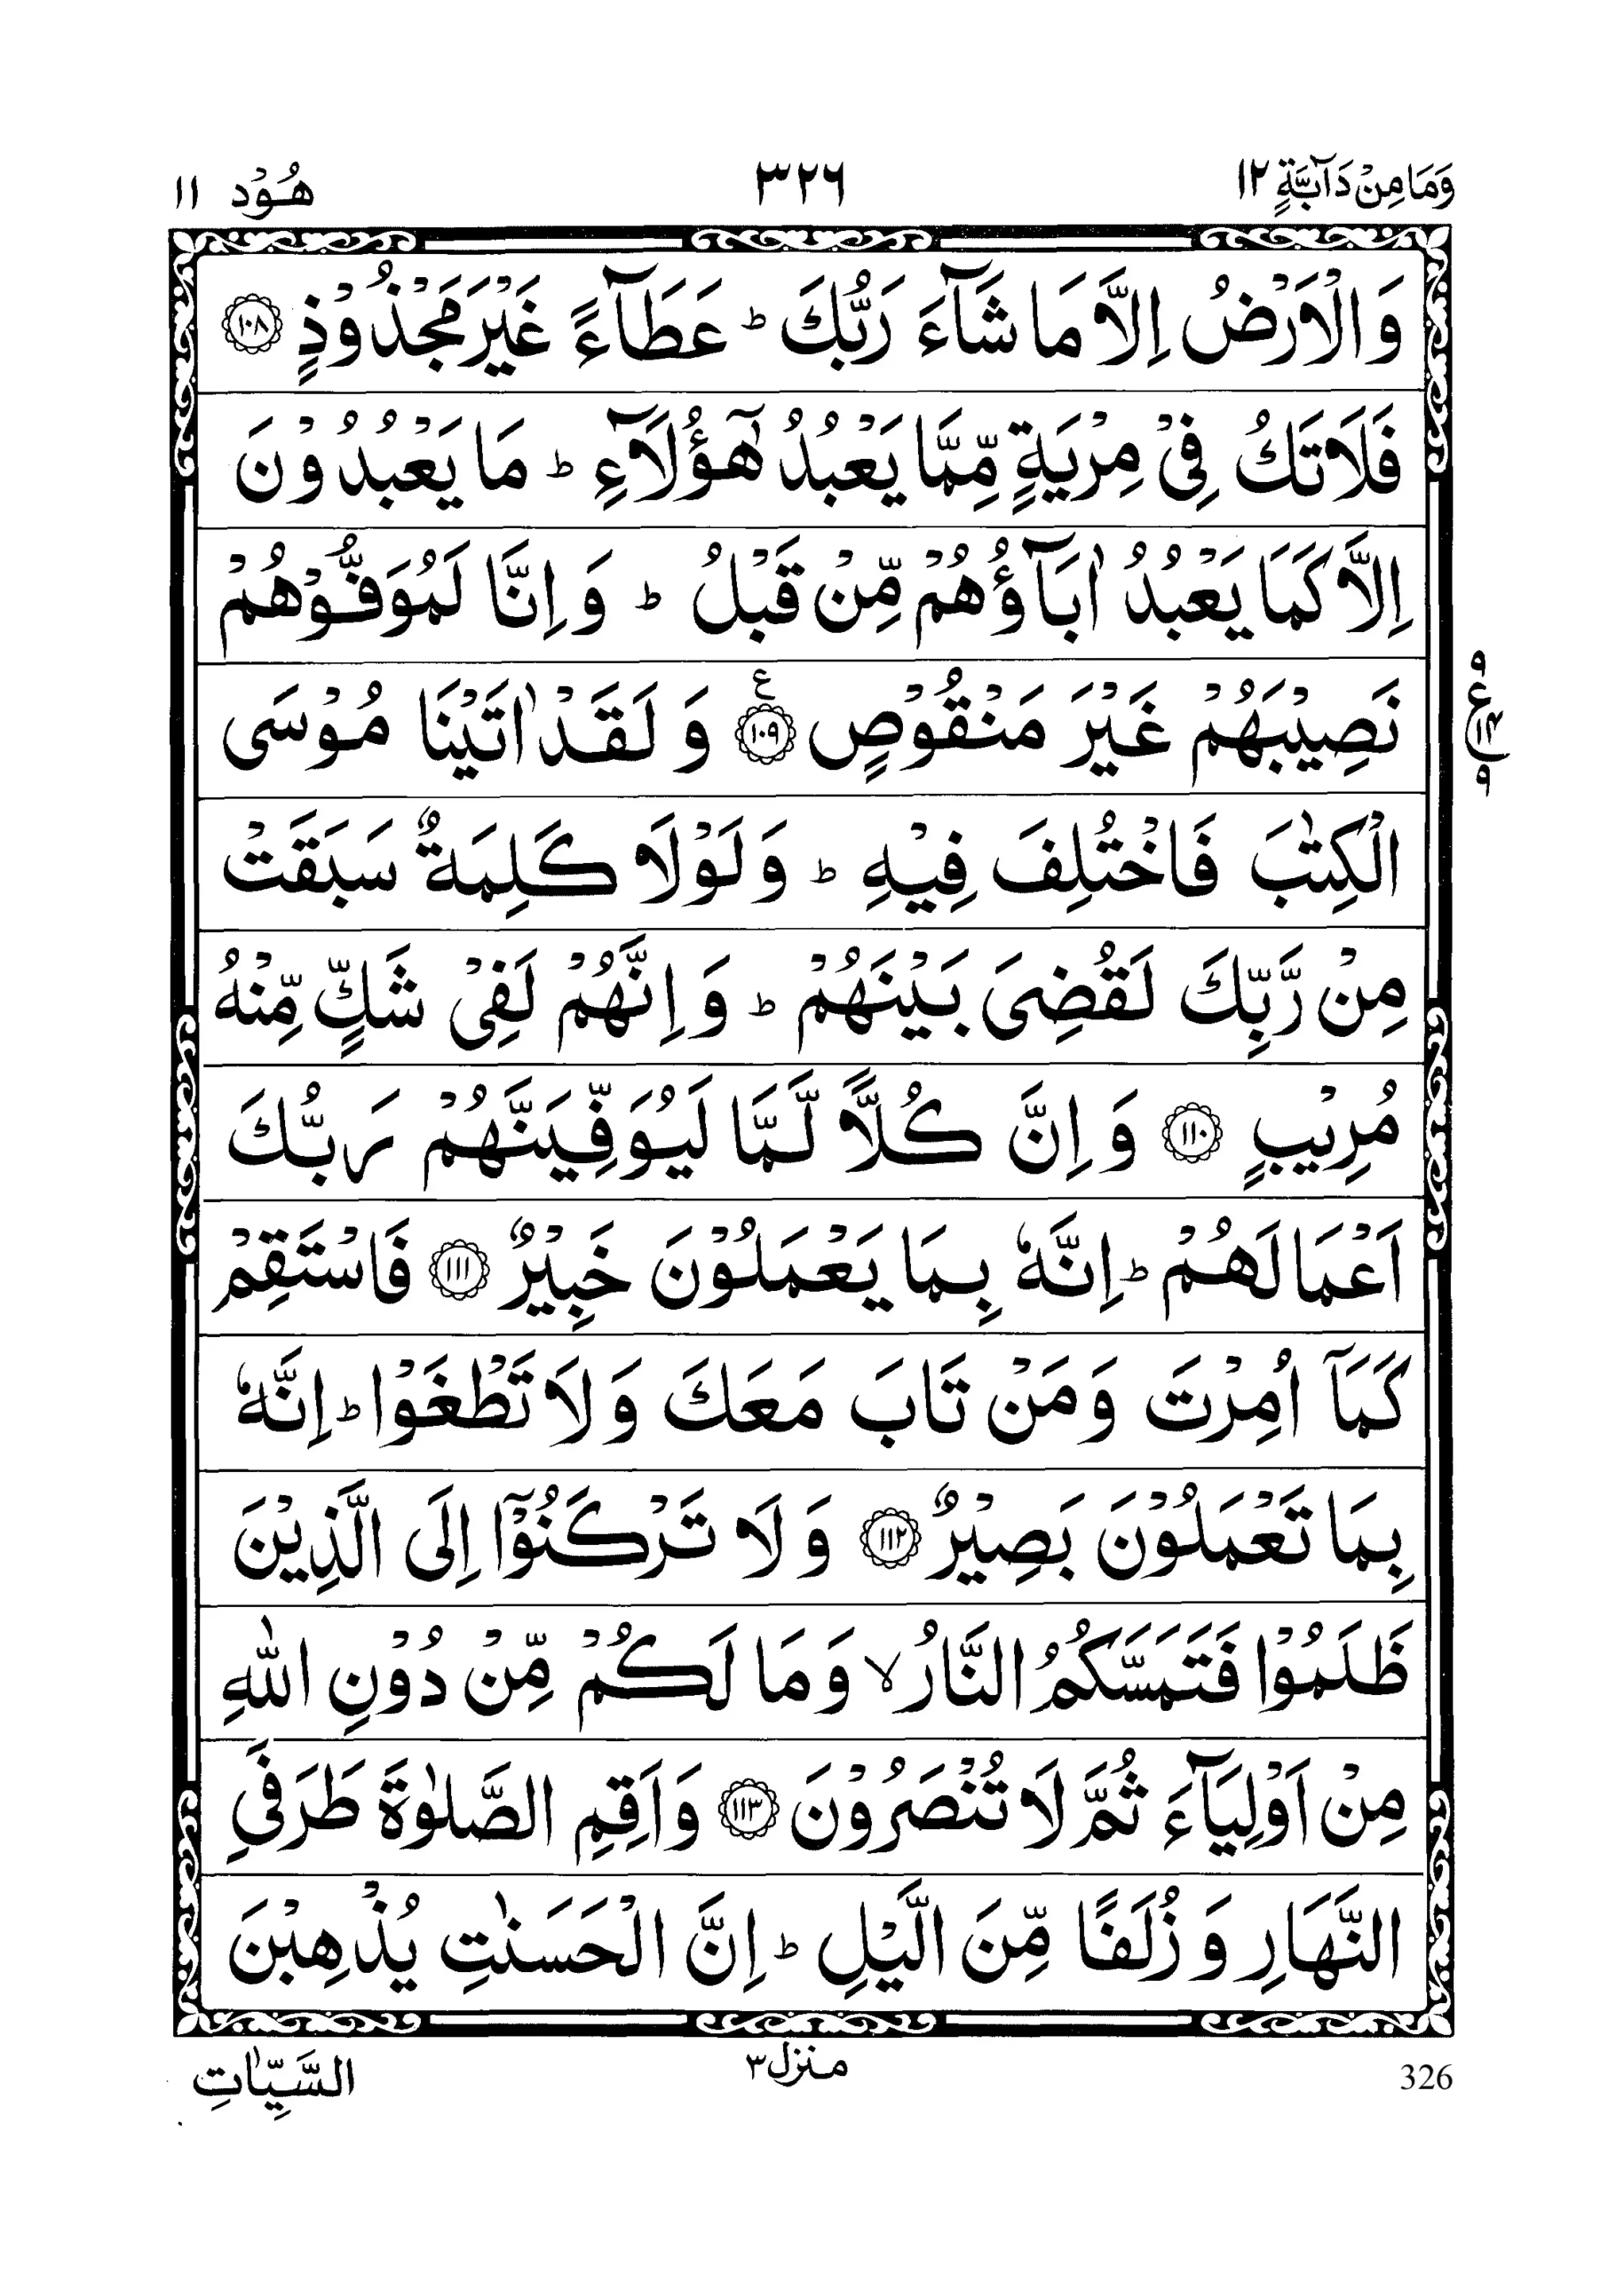 وَمَا مِنْ دَآبَّةٍ ١٢ ٣٢٦ هُوْد ١١
وَالْاَرْضُ اِلَّا مَا شَآءَ رَبُّكَ ؕ عَطَآءً غَيْرَ مَجْذُوْذٍ ﴿١٠٨﴾
فَلَا تَكُ فِيْ مِرْيَةٍ مِّمَّا يَعْبُدُ هٰٓؤُلَآءِ ؕ مَا يَعْبُدُوْنَ
اِلَّا كَمَا يَعْبُدُ اٰبَآؤُهُمْ مِّنْ قَبْلُ ؕ وَاِنَّا لَمُوَفُّوْهُمْ
نَصِيْبَهُمْ غَيْرَ مَنْقُوْصٍ ﴿١٠٩﴾ ع وَلَقَدْ اٰتَيْنَا مُوْسَى
٩ ع ١٤ ٩
الْكِتٰبَ فَاخْتُلِفَ فِيْهِ ؕ وَلَوْلَا كَلِمَةٌ سَبَقَتْ
مِنْ رَّبِّكَ لَقُضِيَ بَيْنَهُمْ ؕ وَاِنَّهُمْ لَفِيْ شَكٍّ مِّنْهُ
مُرِيْبٍ ﴿١١٠﴾ وَاِنَّ كُلًّا لَّمَّا لَيُوَفِّيَنَّهُمْ رَبُّكَ
اَعْمَالَهُمْ ؕ اِنَّهٗ بِمَا يَعْمَلُوْنَ خَبِيْرٌ ﴿١١١﴾ فَاسْتَقِمْ
كَمَآ اُمِرْتَ وَمَنْ تَابَ مَعَكَ وَلَا تَطْغَوْا ؕ اِنَّهٗ
بِمَا تَعْمَلُوْنَ بَصِيْرٌ ﴿١١٢﴾ وَلَا تَرْكَنُوْٓا اِلَى الَّذِيْنَ
ظَلَمُوْا فَتَمَسَّكُمُ النَّارُ ۙ وَمَا لَكُمْ مِّنْ دُوْنِ اللّٰهِ
مِنْ اَوْلِيَآءَ ثُمَّ لَا تُنْصَرُوْنَ ﴿١١٣﴾ وَاَقِمِ الصَّلٰوةَ طَرَفَيِ
النَّهَارِ وَزُلَفًا مِّنَ الَّيْلِ ؕ اِنَّ الْحَسَنٰتِ يُذْهِبْنَ
السَّيِّاٰتِ منزل ٣ 326